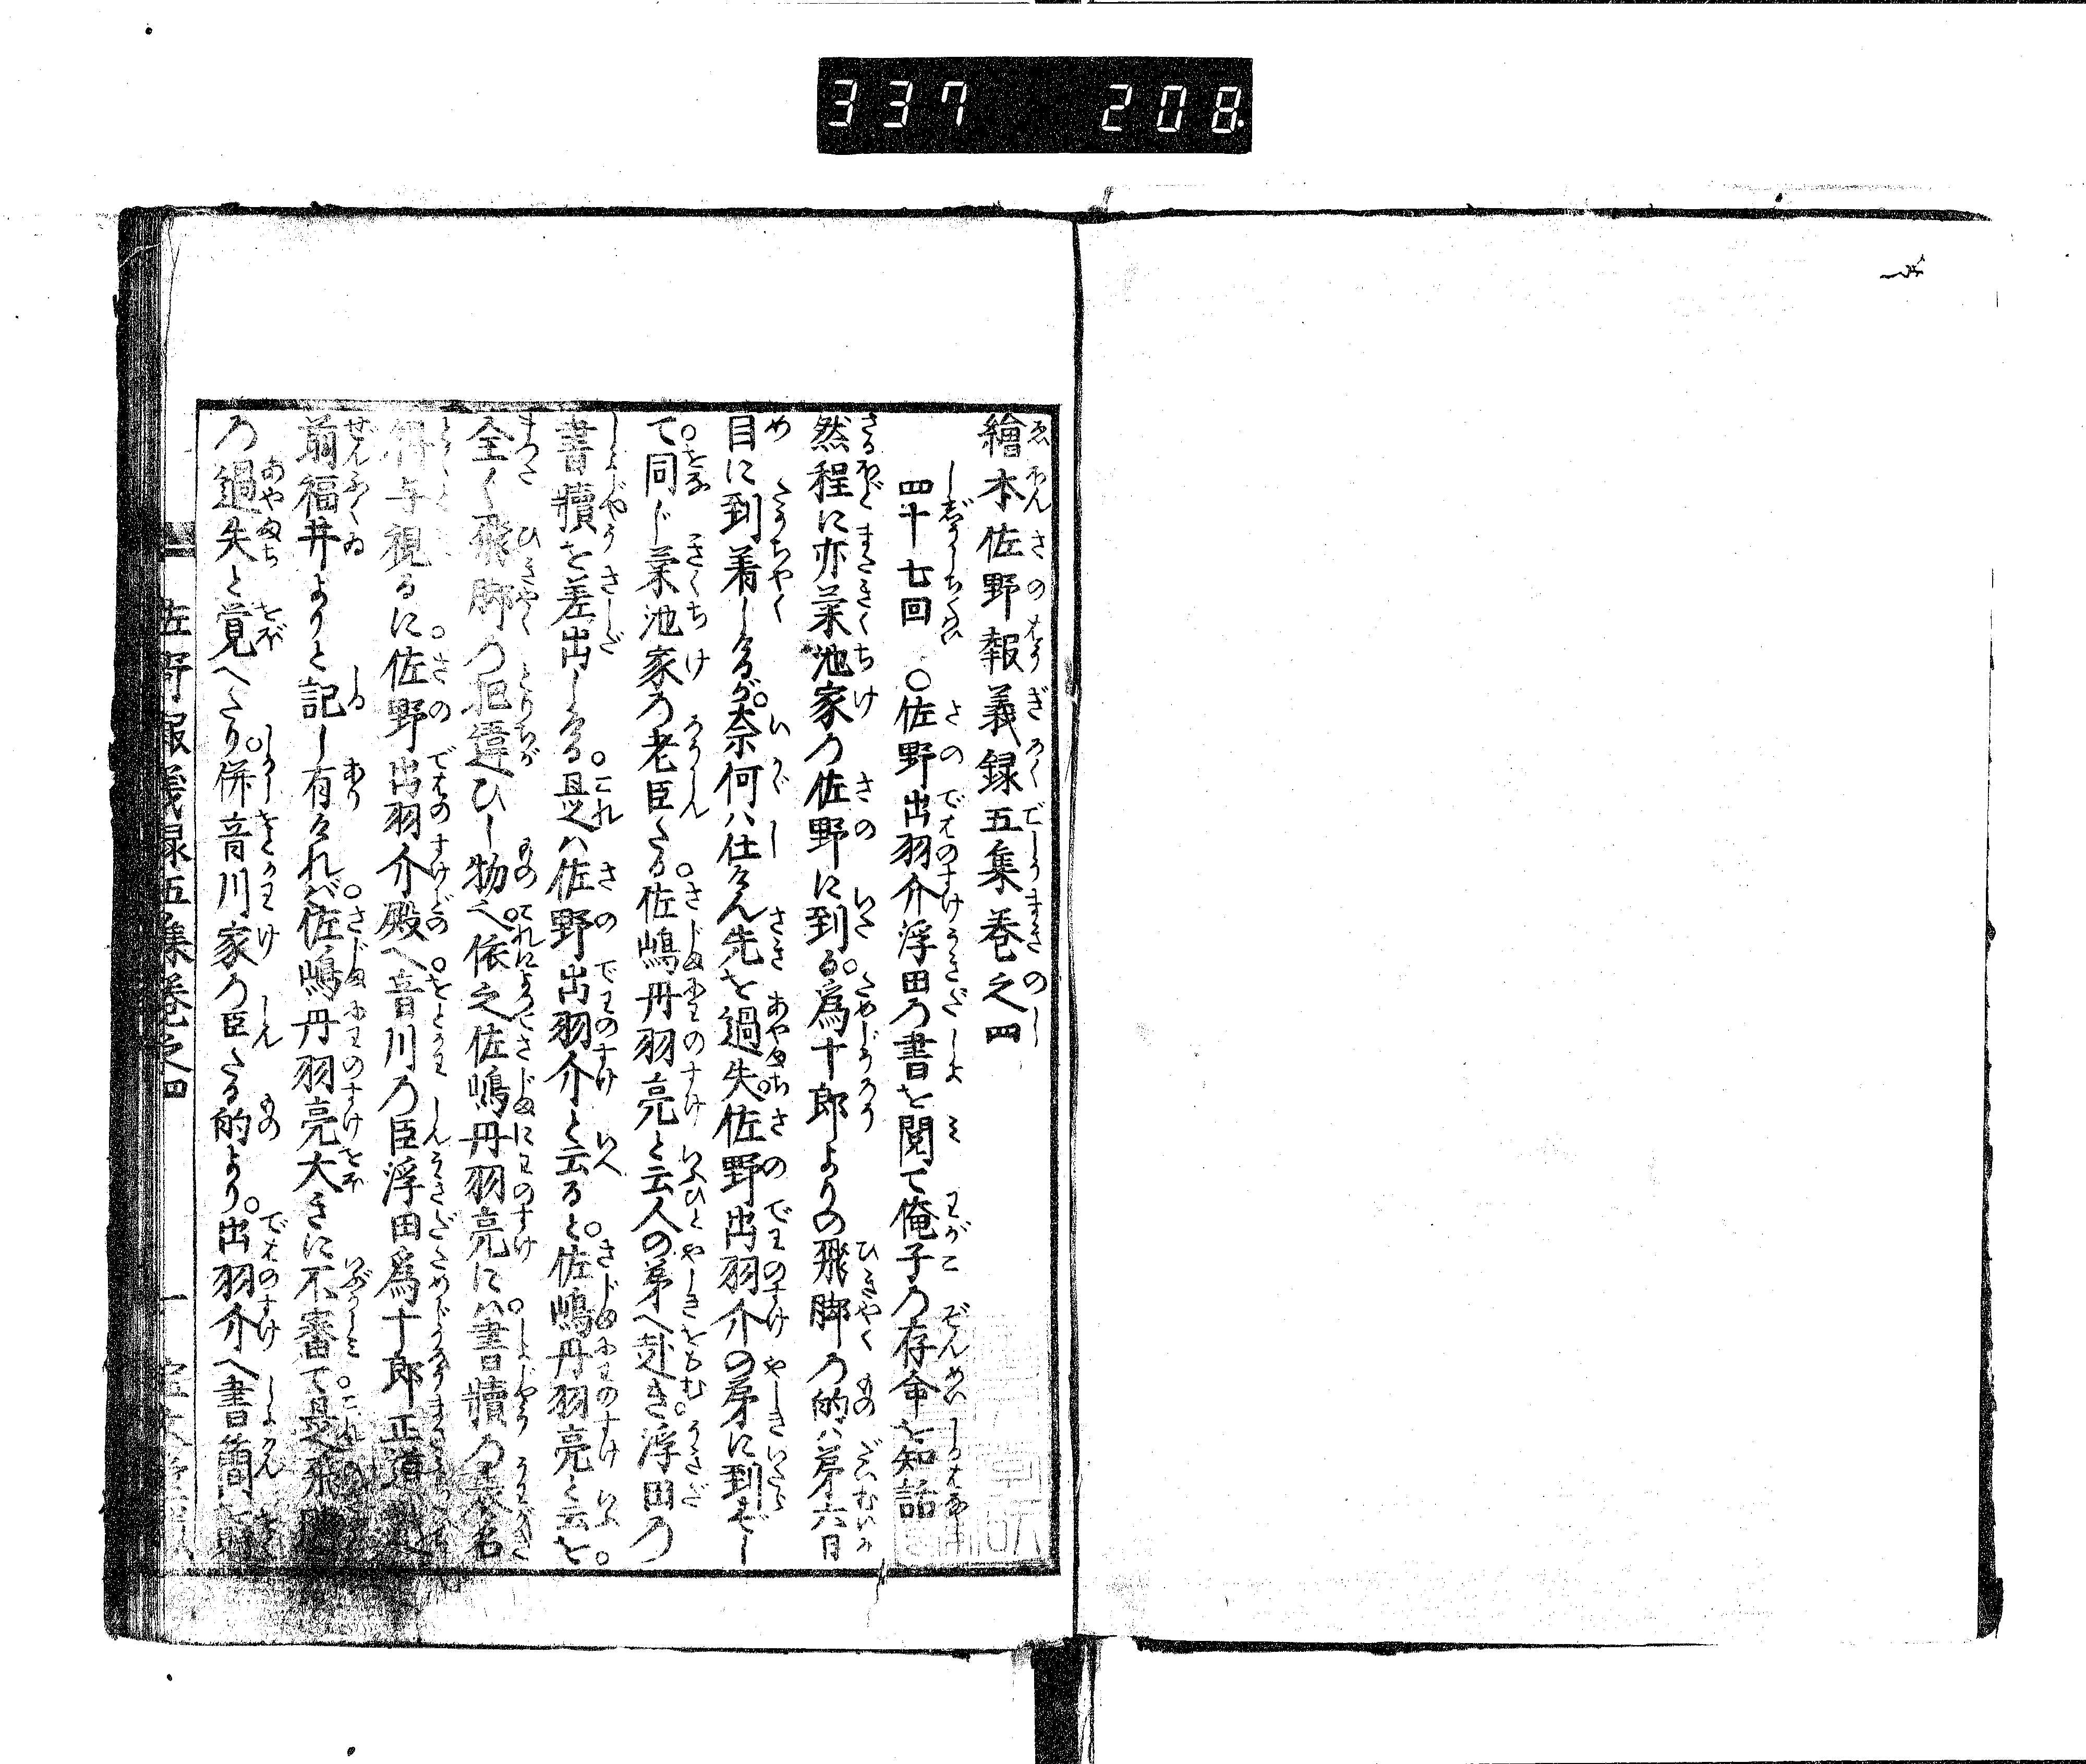 337 208
繪本佐野報義録五集巻之四
四十七回 ○佐野出羽介浮田の書を閲て俺子の存命を知話
然程に亦菊池家の佐野に到る。爲十郎よりの飛脚の的ハ第六日
目に到着しけるが。奈何ハ仕けん先を過失。佐野出羽介の第に到ずし
て。同じ菊池家の老臣たる。佐嶋丹羽亮と云人の第へ赴き。浮田の
書牘を差出しける。是ハ佐野出羽介と云ると。佐嶋丹羽亮と云を。
全く飛脚の把違ひし物。依之佐嶋丹羽亮に。書牘の表名
得与視るに。佐野出羽介殿へ。音川の臣浮田爲十郎正道
前福井よりと記し有けれバ。佐嶋丹羽亮大きに不審て。是飛脚
の過失と覚へたり。併音川家の臣たる的より。出羽介へ書簡を
佐野報義録五集巻之四 一